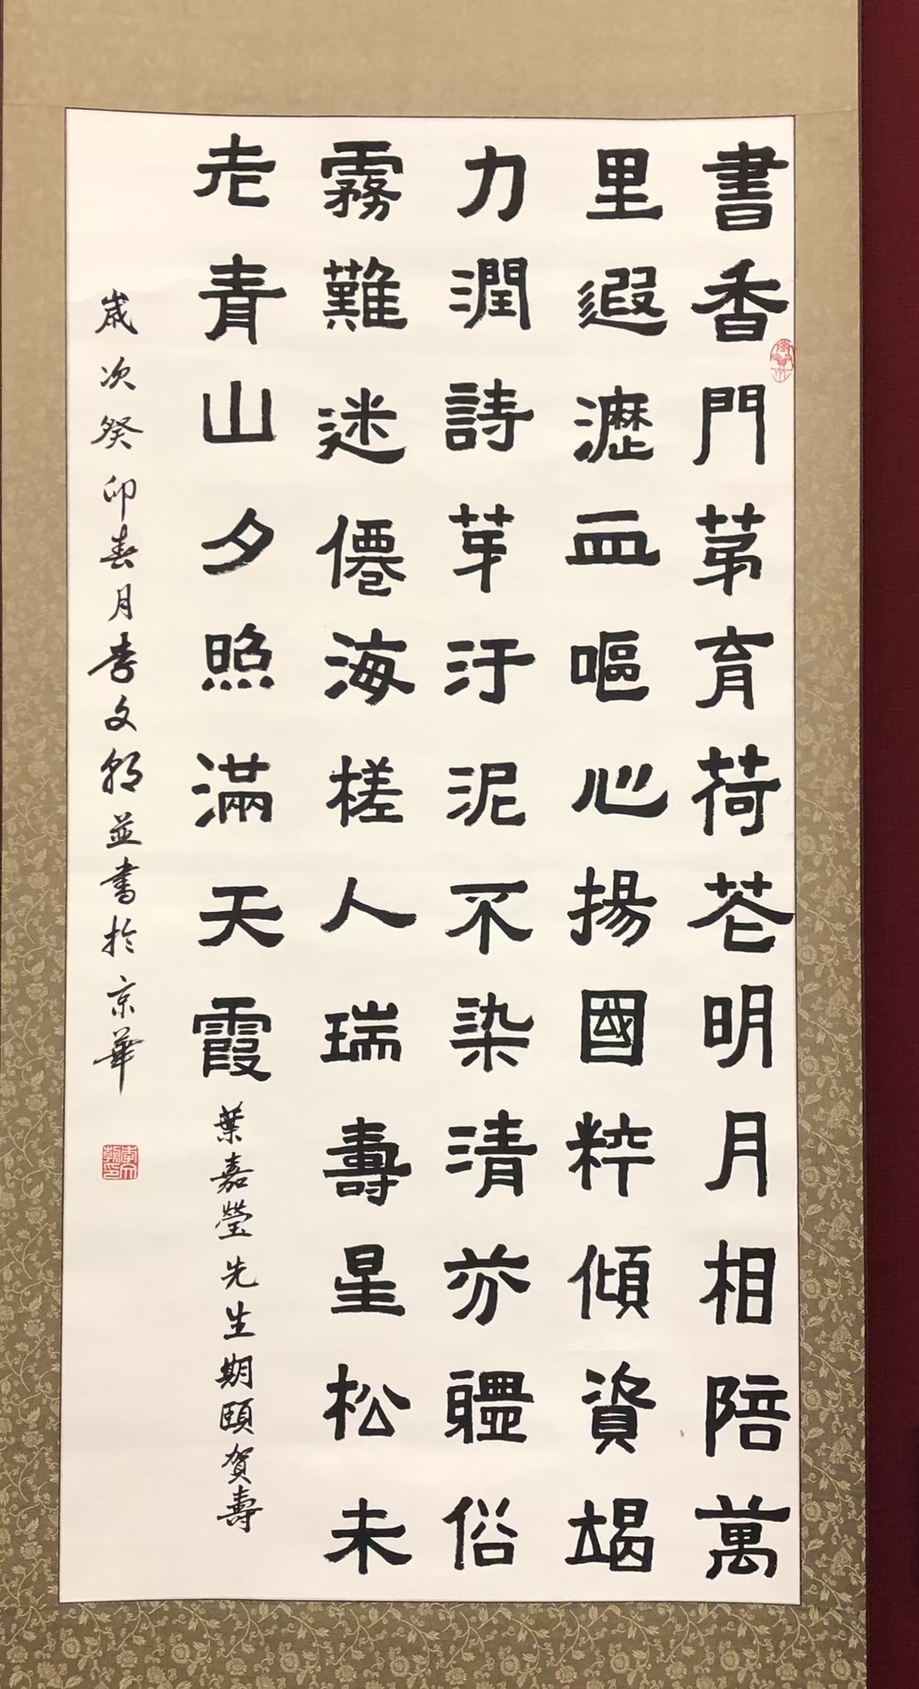 書香門苐育荷花明月相陪萬
里遐瀝血嘔心揚國粹傾資竭
力潤詩芽汙泥不染清芬軆俗
霧難迷僊海槎人瑞壽星松未
老青山夕照滿天霞
葉嘉瑩先生期頤賀壽
歲次癸卯春月李文朝並書於京華
李文朝印